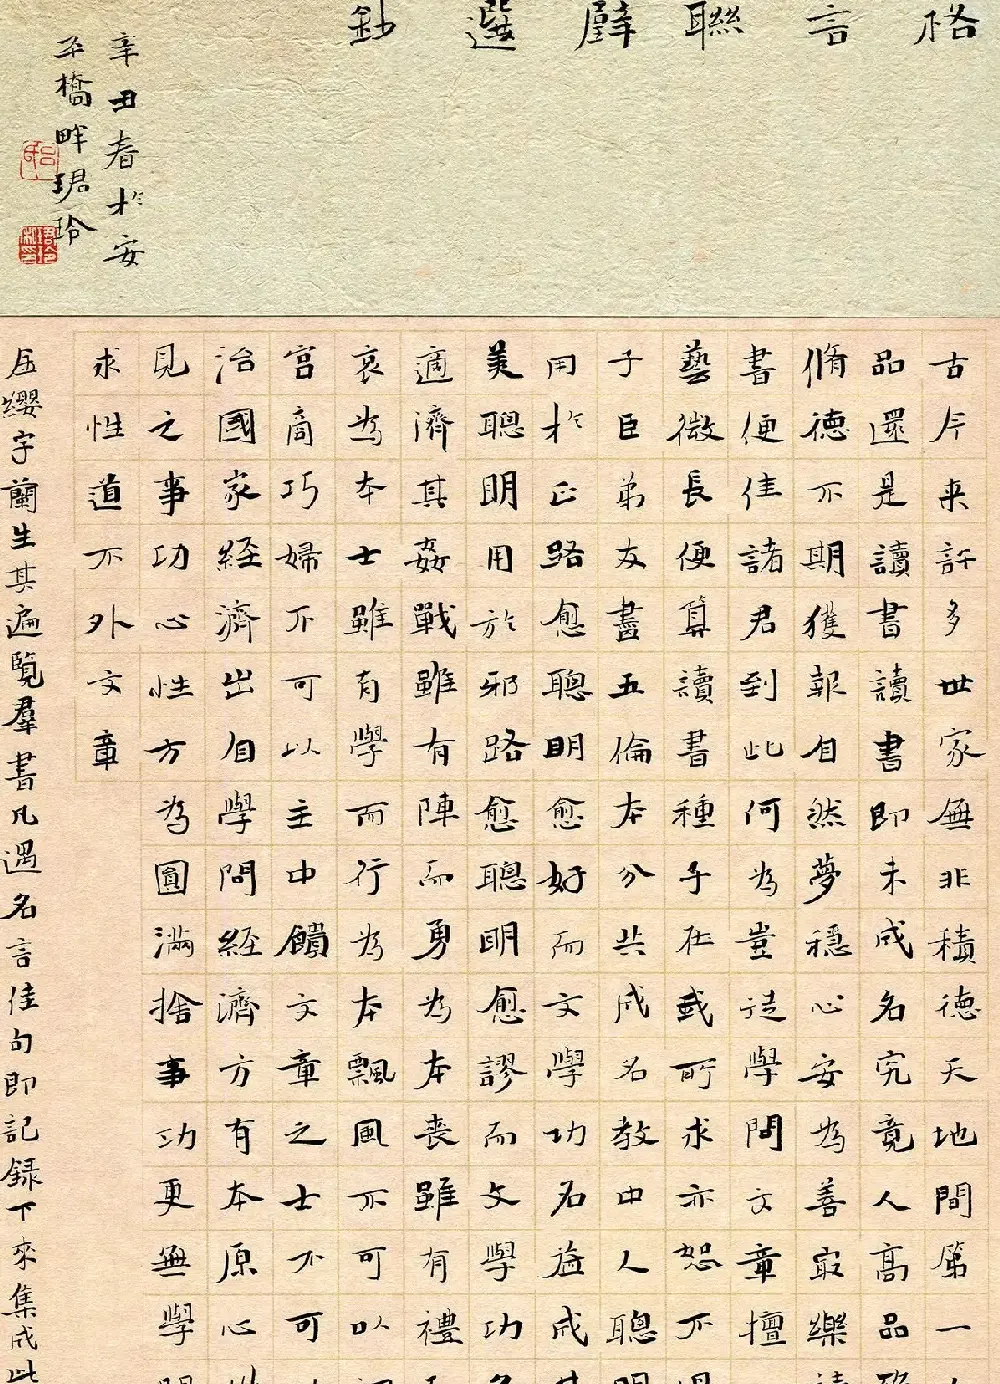 格言聯璧選鈔
辛丑春於安
平橋畔珺玲
古今来許多世家無非積德天地間第一
品還是讀書讀書即未成名究竟人高品
脩德不期獲報自然夢穩心安為善最樂
書便佳諸君到此何為豈徒學問文章擅
藝微長便算讀書種子在我所求亦恕不
子臣弟友盡五倫本分共成名教中人聰
用於正路愈聰明愈好而文學功名益成
美聰明用於邪路愈聰明愈謬而文學功
適濟其姦戰雖有陣而勇為本喪雖有禮
哀為本士雖有學而行為本飄風不可以
宮商巧婦不可以主中饋文章之士不可
治國家經濟出自學問經濟方有本原心
見之事功心性方為圓滿捨事功更無學
求性道不外文章
字蘭生其遍覽羣書凡遇名言佳句即記錄下來集成此